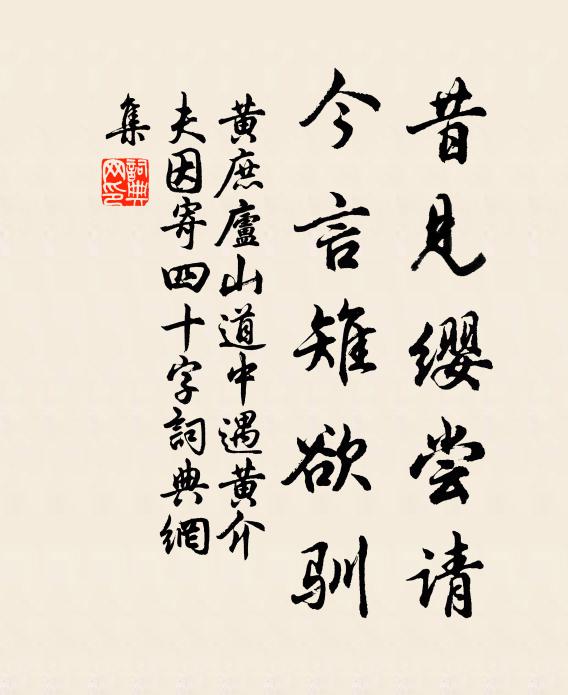 昔见缨尝请
今言雉欲驯
黄庶廬山道中遇黄介
夫因寄四十字詞典網
集
詞典網印